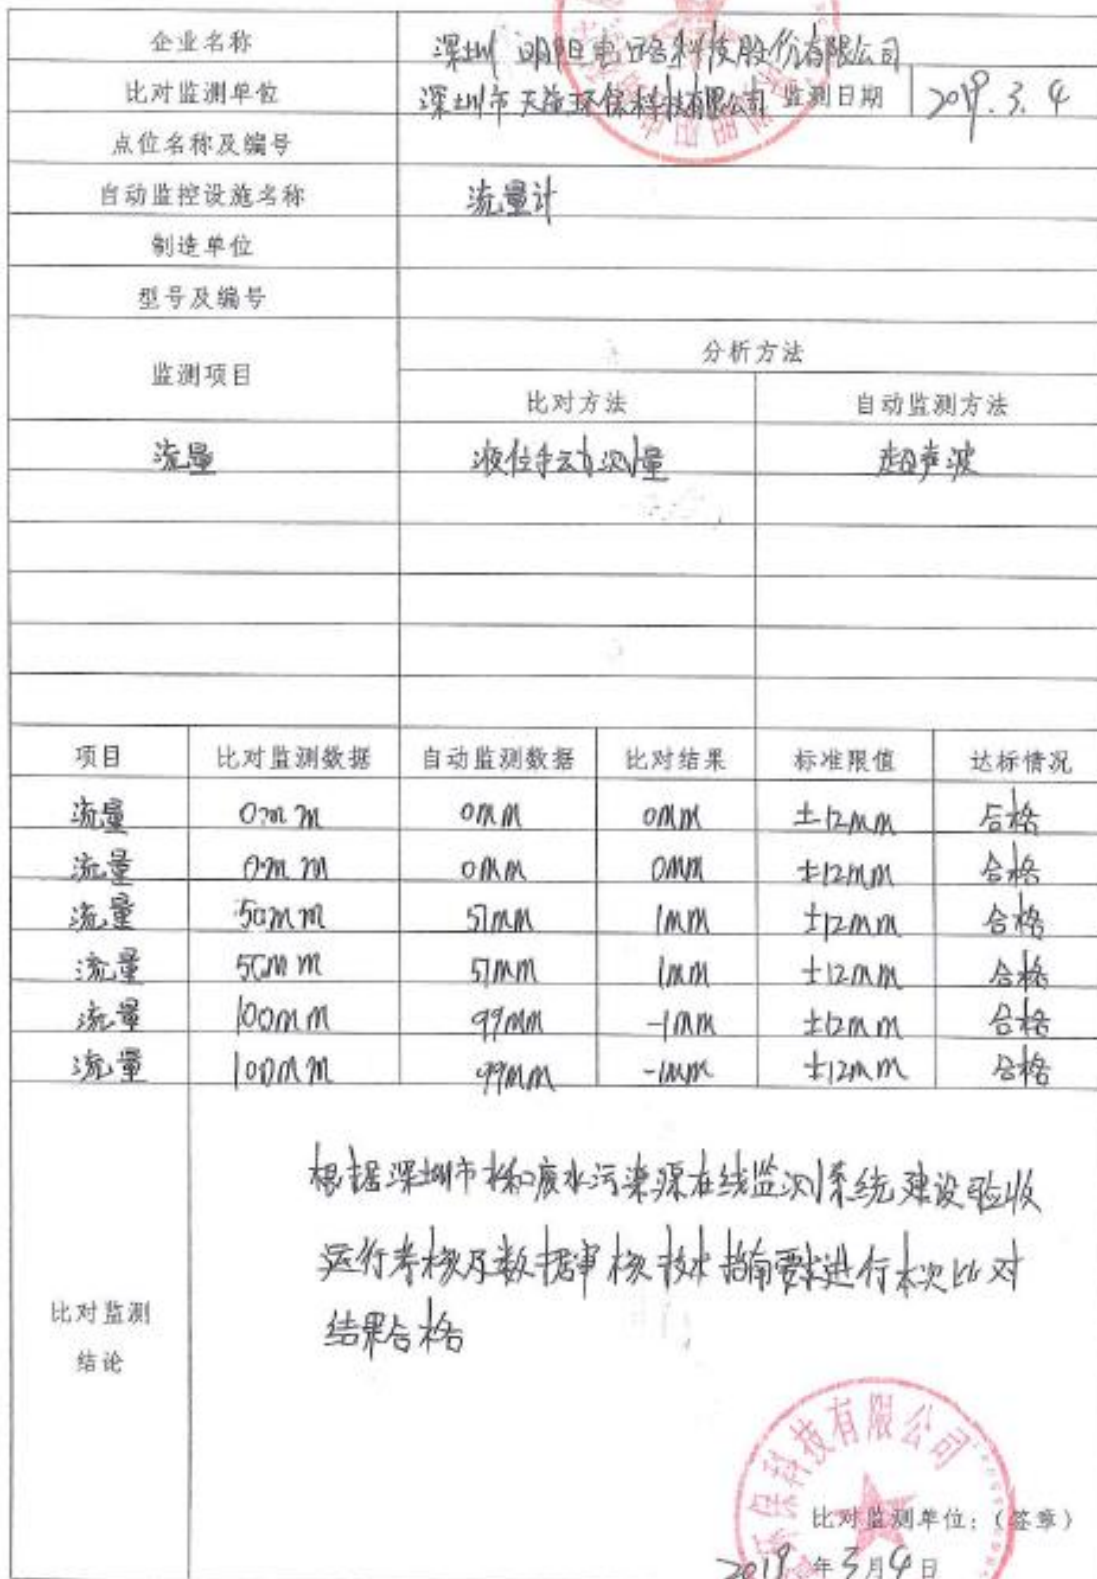 企业名称 深圳明阳电路科技股份有限公司
比对监测单位 深圳市天益环保科技有限公司 监测日期 2019.3.4
点位名称及编号
自动监控设施名称 流量计
制造单位
型号及编号
监测项目 分析方法
比对方法 自动监测方法
流量 液位手动测量 超声波
项目 比对监测数据 自动监测数据 比对结果 标准限值 达标情况
流量 0mm 0mm 0mm ±12mm 合格
流量 0mm 0mm 0mm ±12mm 合格
流量 50mm 51mm 1mm ±12mm 合格
流量 50mm 51mm 1mm ±12mm 合格
流量 100mm 99mm -1mm ±12mm 合格
流量 100mm 99mm -1mm ±12mm 合格
比对监测
结论
根据深圳市 废水污染源在线监测系统建设验收
运行考核及数据审核技术指南要求进行本次比对
结果合格
环保科技有限公司
比对监测单位：（签章）
2019年3月4日